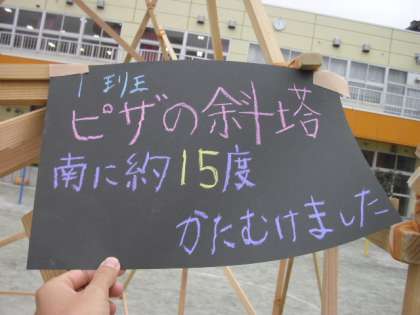 1班
ピザの斜塔
南に約15度
かたむけました